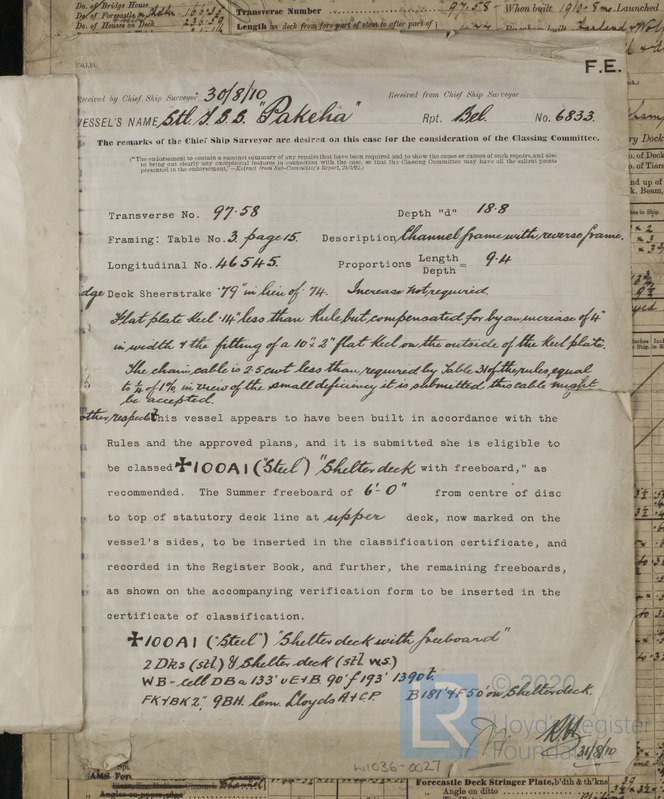 Do. of Bridge House
Do. of Forecastle
Do. of Houses on Deck
Transverse Number 97.58
When built 1910 - 8mo. Launched
Length on deck from fore part of stem to after part of
F.E.
Received by Chief Ship Surveyor 30/8/10 Received from Chief Ship Surveyor
VESSEL'S NAME Stl. S.S.S. "Pakeha" Rpt. Bel. No. 6833.
The remarks of the Chief Ship Surveyor are desired on this case for the consideration of the Classing Committee.
("The endorsement to contain a succinct summary of any repairs that have been required and to show the cause or causes of such repairs, and also
to bring out clearly any exceptional features in connection with the case, so that the Classing Committee may have all the salient points
presented in the endorsement,"—Extract from Sub-Committee's Report, 24/3/92.)
Transverse No. 97.58 Depth "d" 18.8
Framing: Table No. 3, page 15. Description Channel frame with reverse frame.
Longitudinal No. 46545. Proportions Length/Depth = 9.4
dge Deck Sheerstrake '79" in lieu of '74. Increase not required.
Flat plate keel '14" less than Rule but compensated for by an increase of 4"
in width & the fitting of a 10" x 2" flat keel on the outside of the keel plate.
The chain cable is 2.5 cwt less than required by Table 31 of the rules, equal
to ¼ of 1%, in view of the small deficiency it is submitted this cable might
be accepted.
other respects this vessel appears to have been built in accordance with the
Rules and the approved plans, and it is submitted she is eligible to
be classed ✠100A1 ("Steel") "Shelter deck with freeboard," as
recommended. The Summer freeboard of 6'-0" from centre of disc
to top of statutory deck line at upper deck, now marked on the
vessel's sides, to be inserted in the classification certificate, and
recorded in the Register Book, and further, the remaining freeboards,
as shown on the accompanying verification form to be inserted in the
certificate of classification.
✠100A1 ("Steel") "Shelter deck with freeboard"
2 Dks (stl) & Shelter deck (stl w.s.)
WB - cell DB a 133' u E & B 90' f 193' 1390t.
FK & BK 2", 9BH. Cem. Lloyds A & C.P. B 181' & F 50' on Shelter deck.
31/8/10
LR © 2020
Lloyd's Register
Foundation
W1036-0027
Forecastle Deck Stringer Plate, b'dth & th'kns
Angle on ditto